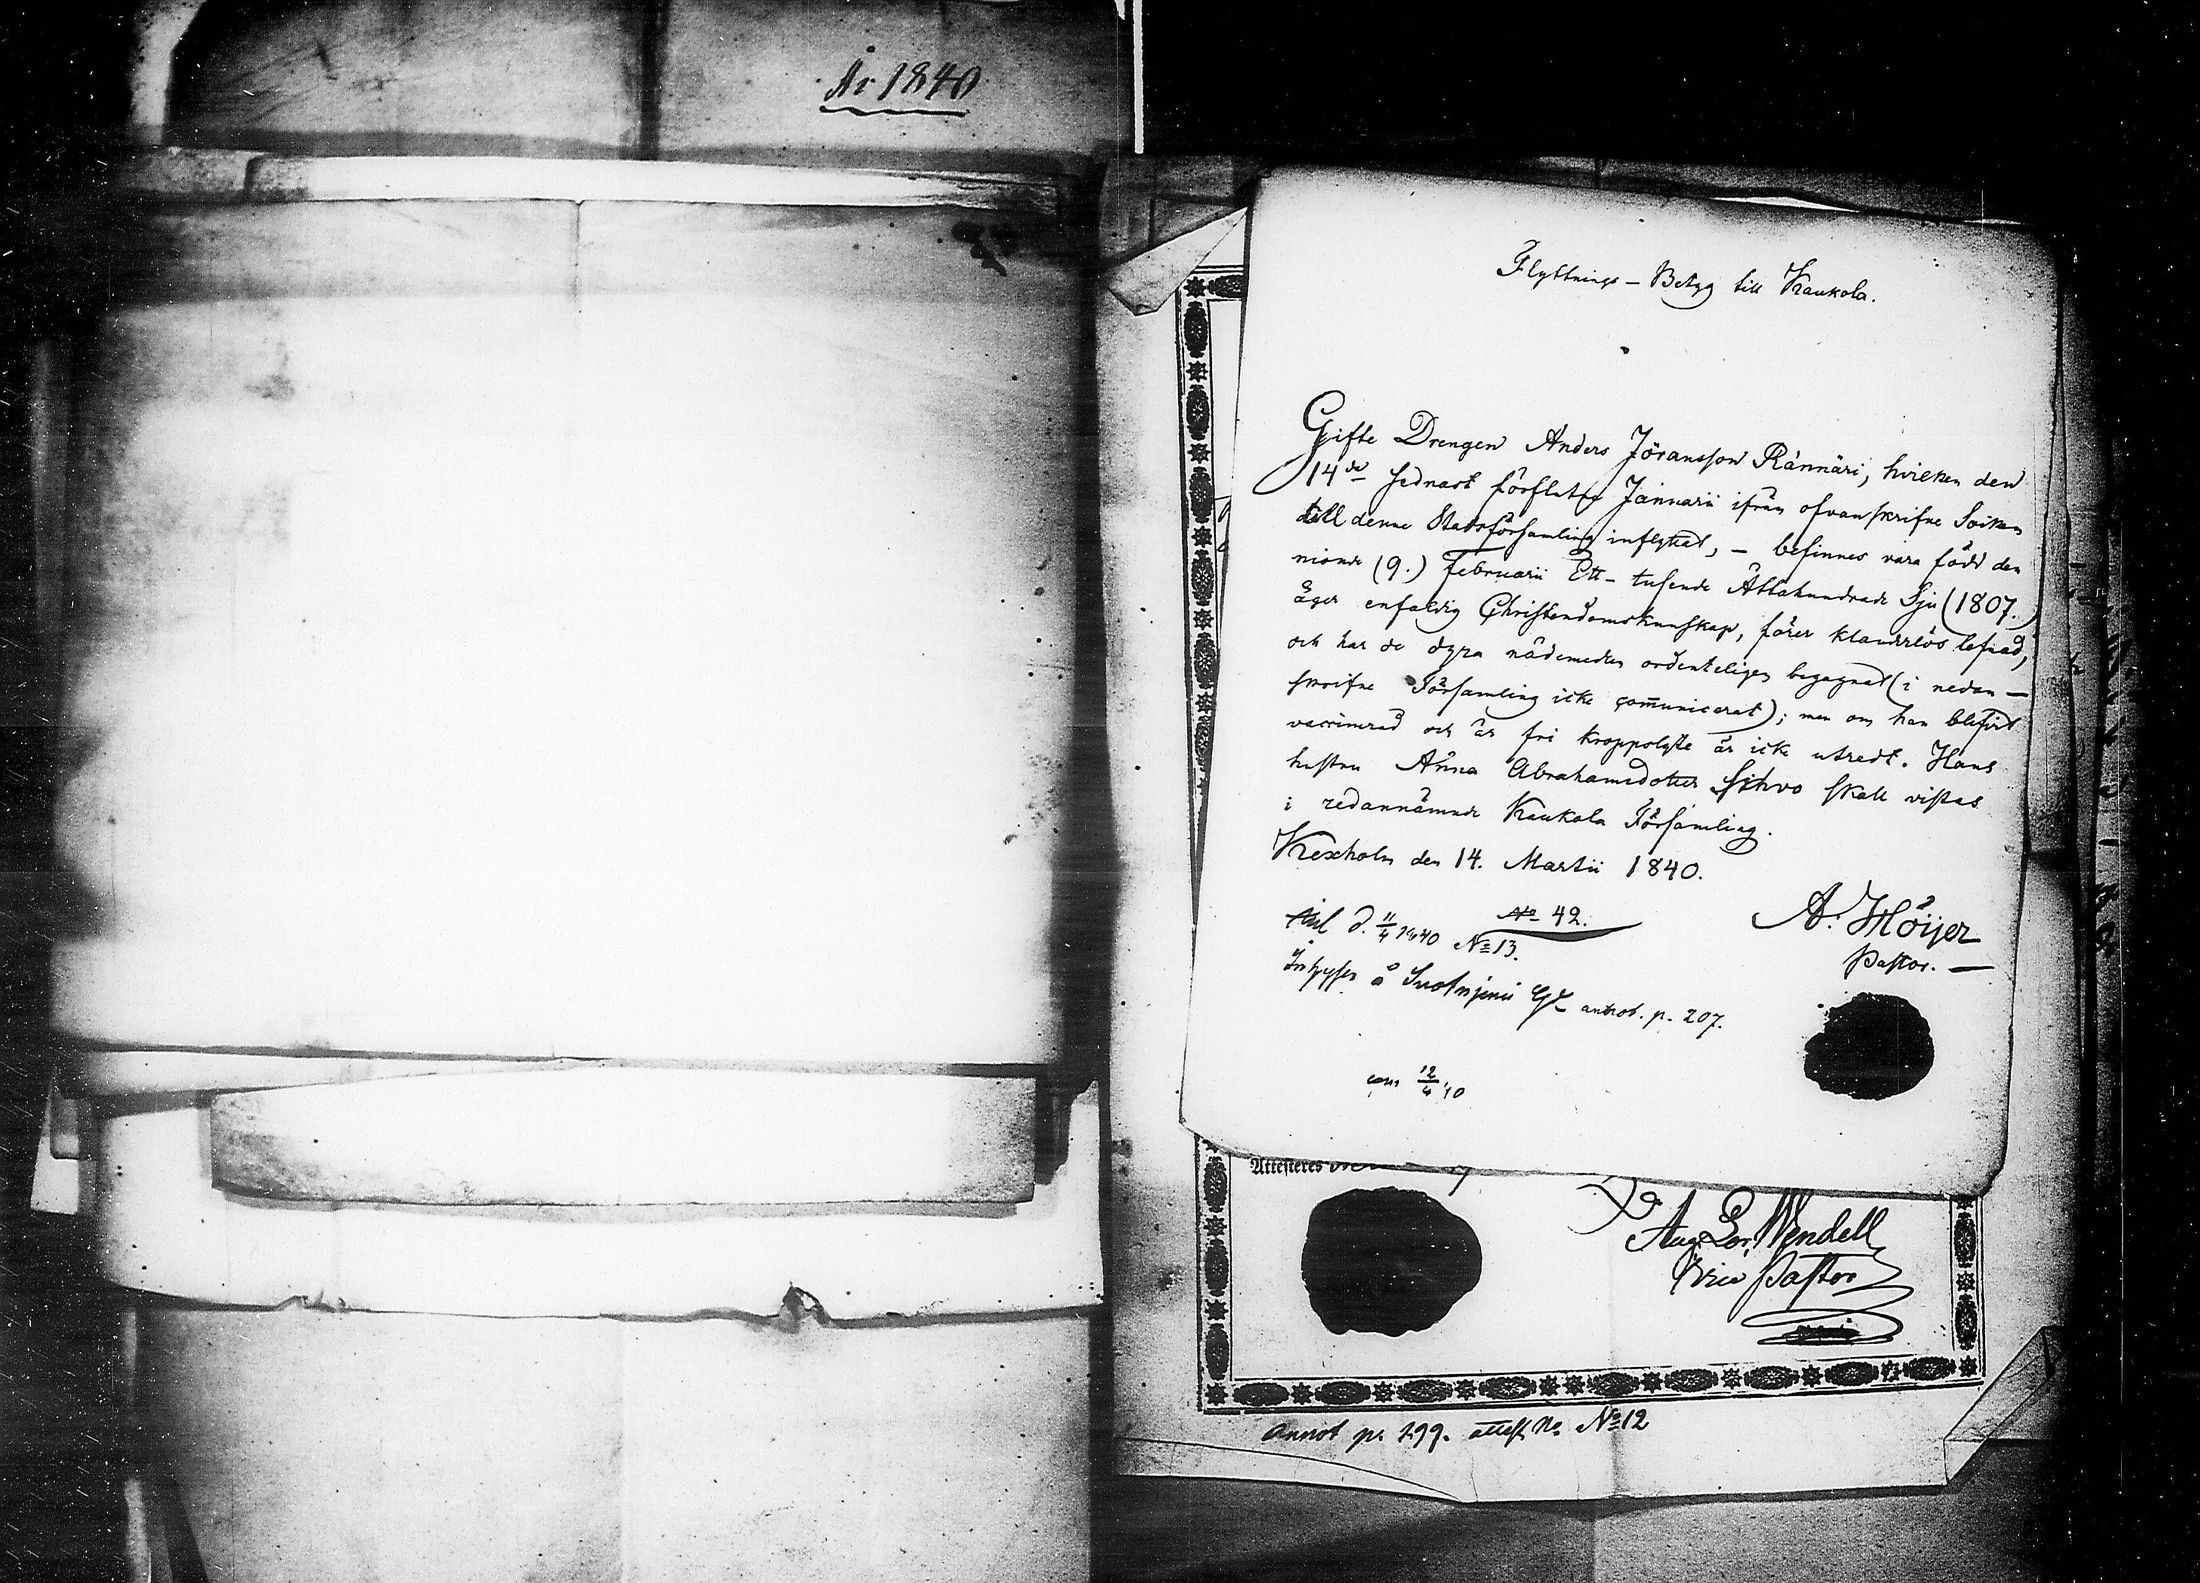 År 1840
Flyttnings-Betyg till Kaukola.
Gifte Drengen Anders Jöransson Rännäri, hvilken den
14de sednast förflutne Januarii ifrån ofvanskrifne Socken
till denne Stadsförsamling inflyttat, – befinnes vara född den
nionde (9.) Februarii Ett-tusende Åttahundrade Sju (1807.)
äger enfaldig Christendomskunskap, förer klanderlös lefnad,
och har de dyra nådemedlen ordenteligen begagnat (i nedan-
skrifne Församling icke com̄unicerat); men om han blifvit
vaccinerad och är fri kroppslyte är icke utredt. Hans
hustru Anna Abrahamsdotter Sihvo skall vistas
i redannämnde Kaukola Församling.
Kexholm den 14. Martii 1840.
No 42.
A. Höijer
Pastor.
d. 11/4 1840 No 13.
Inhyses å annot. p. 207.
com 12/4 40
Attesteres
Aug. Lor. Wendell
Vice Pastor
Annot p. 299. attest No 12